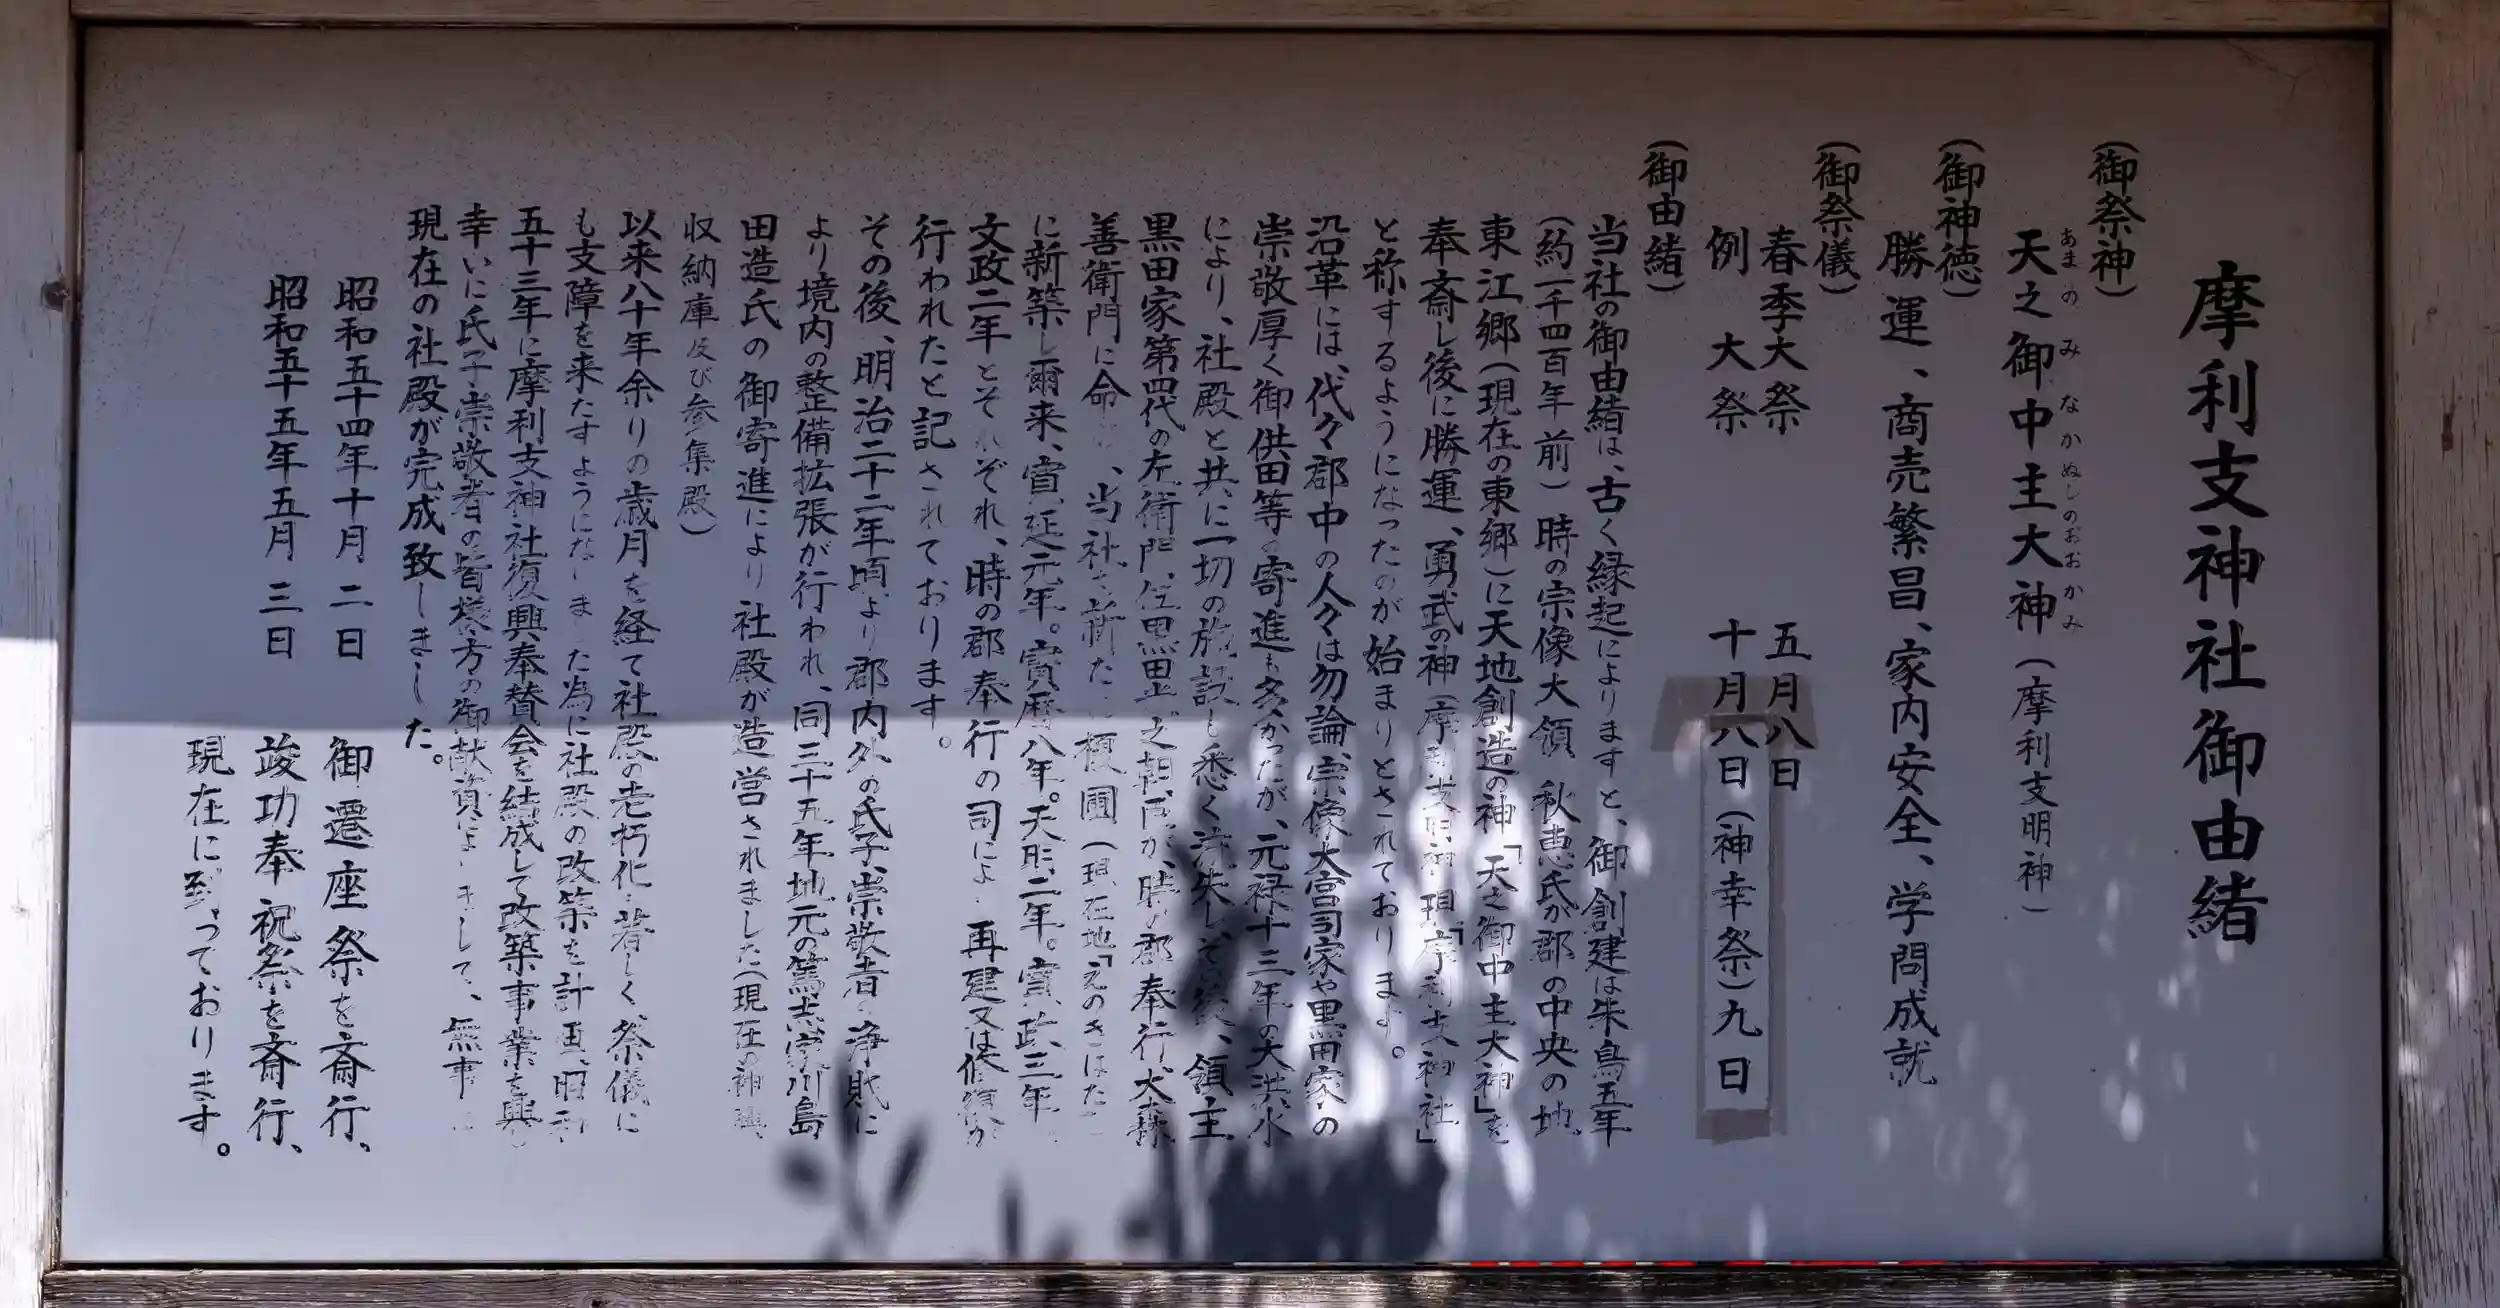 摩利支神社御由緒
(御祭神)
あまのみなかぬしのおおかみ
天之御中主大神(摩利支明神)
(御神徳)
勝運、商売繁昌、家内安全、学問成就
(御祭儀)
春季大祭 五月八日
例 大祭 十月八日(神幸祭)九日
(御由緒)
当社の御由緒は、古く縁起によりますと、御創建は朱鳥五年
(約一千四百年前)時の宗像大領 秋恵氏が郡の中央の地、
東江郷(現在の東郷)に天地創造の神「天之御中主大神」を
奉斎し後に勝運、勇武の神(摩利支明神)現「摩利支神社」
と称するようになったのが始まりとされております。
沿革には、代々郡中の人々は勿論、宗像大宮司家や黒田家の
崇敬厚く御供田等の寄進も多かったが、元禄十三年の大洪水
により、社殿と共に一切の施設も悉く流失し、その後、領主
黒田家第四代の左衛門佐黒田 之朝臣が、時の郡奉行大森
善衛門に命 、当社を新た 榎圃(現在地「えのきはた
に新築し爾来、寳延元年。寳暦八年。天明二年。寛政三年。
文政二年とそれぞれ、時の郡奉行の司によ 再建又は修復が
行われたと記されております。
その後、明治二十二年頃より郡内外の氏子、崇敬者の浄財に
より境内の整備拡張が行われ、同三十五年地元の篤志家川島
田造氏の御寄進により社殿が造営されました(現在の神輿
収納庫及び参集殿)
以来八十年余りの歳月を経て社殿の老朽化 著しく、祭儀に
も支障を来たすようになりました為に社殿の改築を計画、昭和
五十三年に摩利支神社復興奉賛会を結成して改築事業を興し
幸いに氏子崇敬者の皆様方の御献資によりまして、無事
現在の社殿が完成致しました。
昭和五十四年十月二日 御遷座祭を斎行、
昭和五十五年五月三日 竣功奉祝祭を斎行、
現在に到っております。